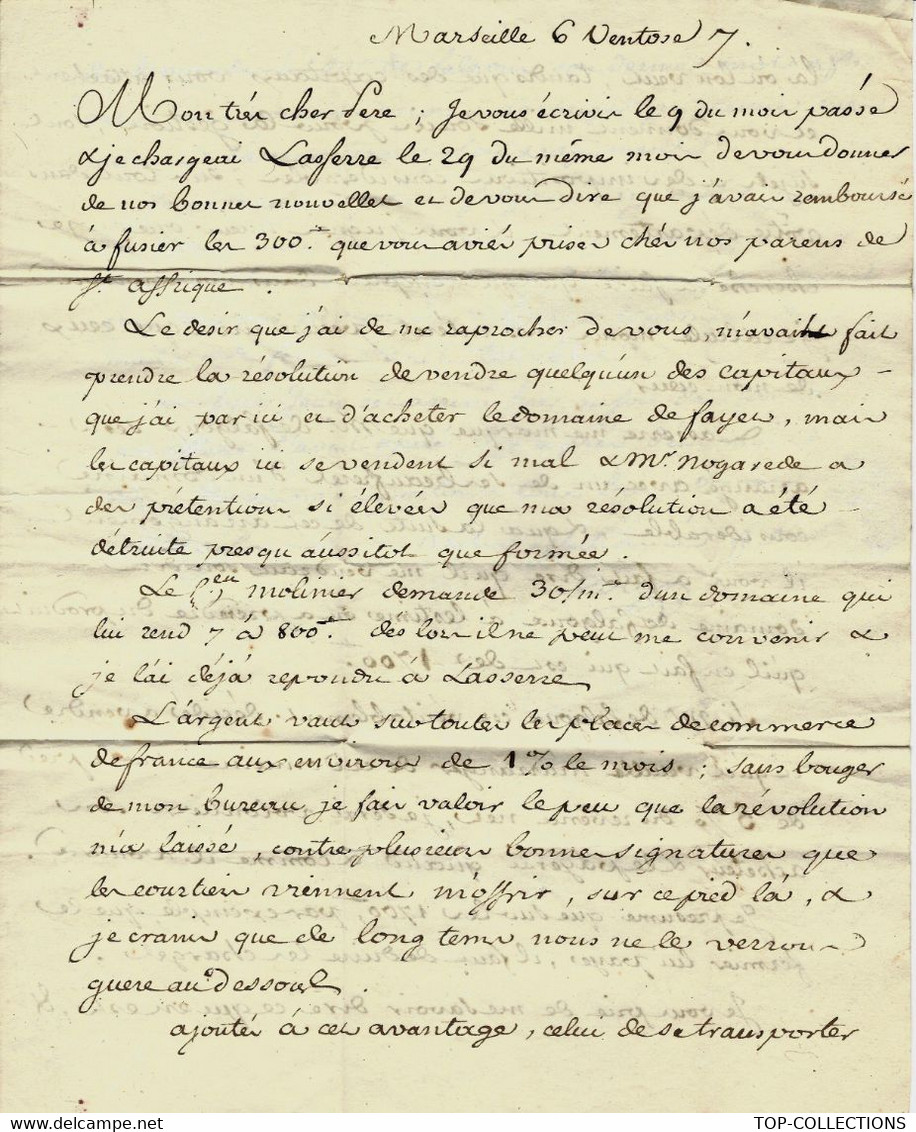 Marseille 6 Ventose 7.
Mon trés cher Pere ; Je vous écrivis le 9 du mois passé
& je chargeai Lasserre le 29 du même mois de vous donner
de nos bonnes nouvelles et de vous dire que j'avais remboursé
à fusier les 300.# que vous aviés prises chés nos parens de
St. affrique.
Le desir que j'ai de me raprocher de vous, m'avait fait
prendre la résolution de vendre quelqu'un des capitaux
que j'ai par ici et d'acheter le domaine de fayet, mais
les capitaux ici se vendent si mal & Mr. Nogarede a
des prétentions si élevées que ma résolution a été
détruite presqu'aussitot que formée.
Le Cen molinier demande 30/m.# d'un domaine qui
lui rend 7 à 800.# dès lors il ne peut me convenir &
je l'ai déjà repondu à Lasserre
L'argent vaut sur toutes les places de commerce
de france aux environs de 1% le mois ; sans bouger
de mon bureau je fais valoir le peu que la révolution
m'a laissé, contre plusieurs bonnes signatures que
les courtiers viennent m'offrir, sur ce pied là, &
je crains que de long tems nous ne le verrons
guere au dessous.
ajoutés à cet avantage, celui de se transporter
TOP-COLLECTIONS